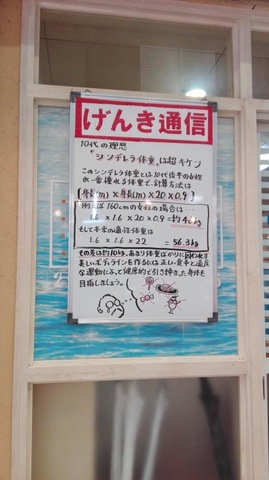 げんき通信
10代の理想
"シンデレラ体重"は超キケン
このシンデレラ体重とは10代後半の女性
の一番憧れる体重で、計算方法は
身長(m)×身長(m)×20×0.9
例えば160cmの女性の場合は
1.6×1.6×20×0.9=約46kg
そして本来の適性体重は
1.6×1.6×22=56.3kg
その差は約10kg。あまり体重ばかりに
美しいボディラインを作るには正しい食事と適度
な運動によって健康的な引き締まった身体を
目指しましょう。